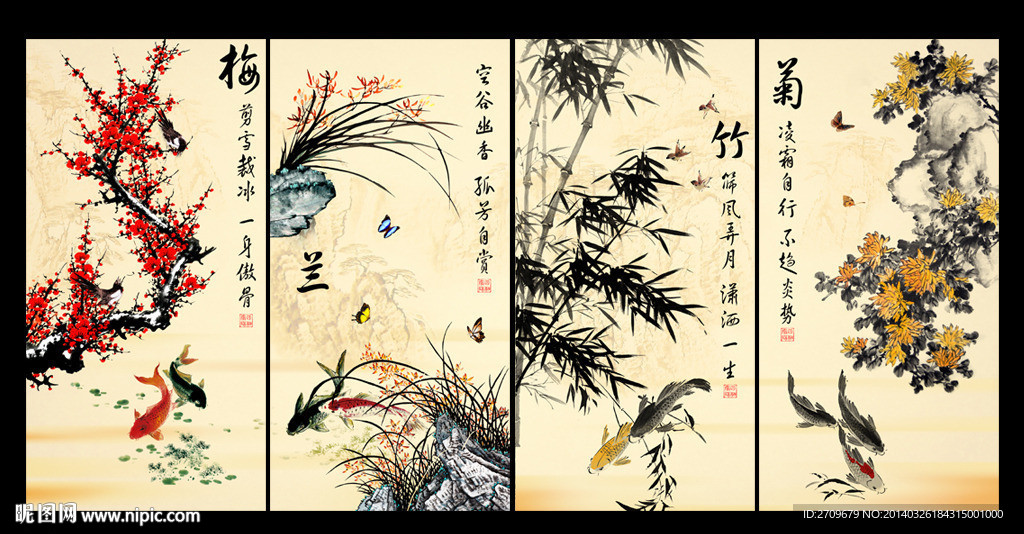 梅
剪雪裁冰 一身傲骨
兰
空谷幽香 孤芳自赏
竹
筛风弄月 潇洒一生
菊
凌霜自行 不趋炎势
昵图网 www.nipic.com
ID:2709679 NO:20140326184315001000